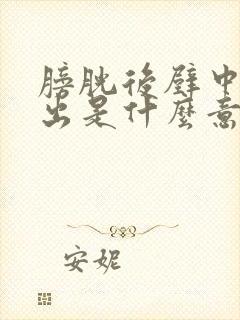 膀胱後壁中
出是什麼意
安妮